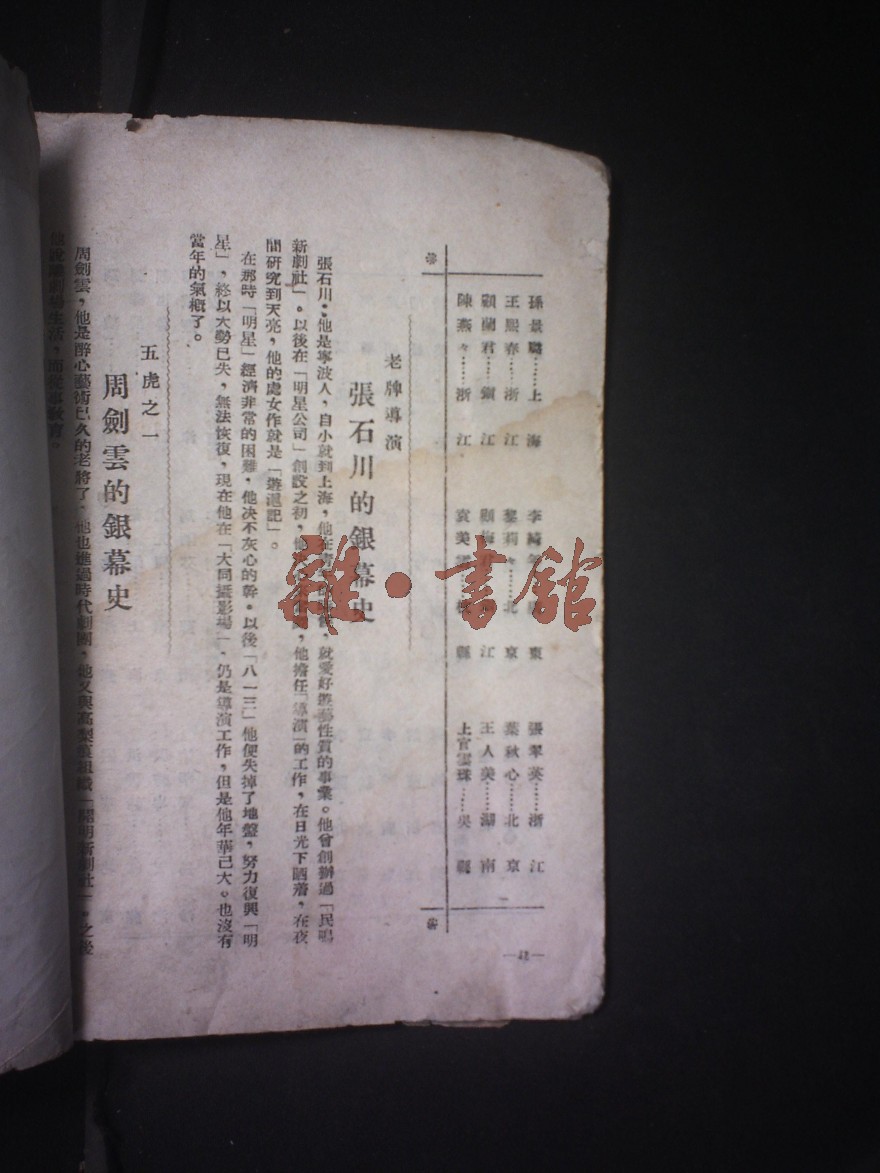 孫景璐……上海
王熙春……浙江
顧蘭君……鎮江
陳燕々……浙江
李綺年 東
黎莉々……北京
顧梅君 江
袁美雲 縣
張翠英……浙江
葉秋心……北京
王人美……湖南
上官雲珠……吳縣
老牌導演
張石川的銀幕史
張石川,他是寧波人,自小就到上海,他在青 就愛好遊藝性質的事業。他曾創辦過「民鳴
新劇社」。以後在「明星公司」創設之初,他 他擔任「導演」的工作,在日光下晒着,在夜
間研究到天亮,他的處女作就是「遊滬記」。
在那時「明星」經濟非常的困難,他决不灰心的幹。以後「八一三」他便失掉了地盤,努力復興「明
星」,終以大勢已失,無法恢復,現在他在「大同攝影場」,仍是導演工作,但是他年華已大。也沒有
當年的氣概了。
五虎之一
周劍雲的銀幕史
周劍雲,他是醉心藝術已久的老將了,他也進過時代劇團,他又與高梨痕組織「開明新劇社」,之後
他脫離劇場生活,而從事教育。
—42—
雜·書館